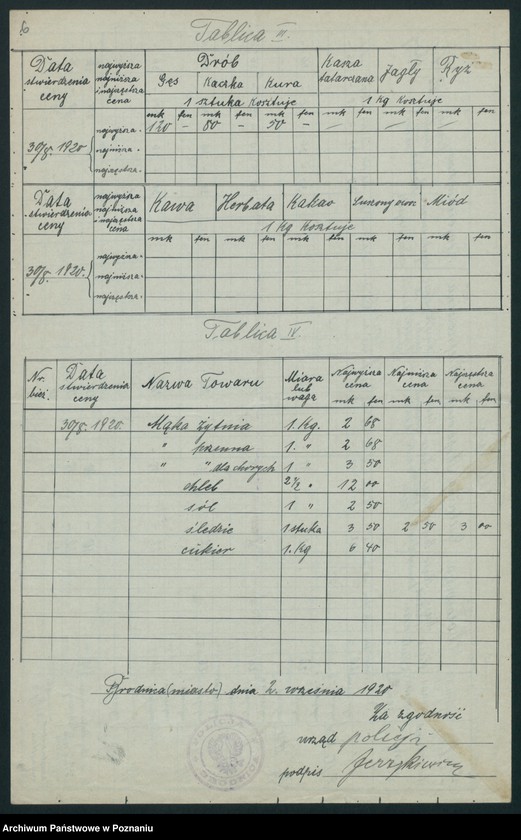 6
Tablica III.
Data stwierdzenia ceny
najwyższa najniższa i najczęstsza cena
Drób
Kasza tatarczana
Jagły
Ryż
Gęś Kaczka Kura
1 sztuka kosztuje
1 Kg kosztuje
mk fen mk fen mk fen mk fen mk fen mk fen
30/8. 1920 najwyższa. 120 – 80 – 50 –
najniższa.
najczęstsza.
Data stwierdzenia ceny
najwyższa najniższa i najczęstsza cena
Kawa Herbata Kakao Miód
1 Kg Kosztuje
mk fen mk fen mk fen mk fen mk fen
30/8. 1920. najwyższa.
najniższa.
najczęstsza.
Tablica IV.
Nr. bież.
Data stwierdzenia ceny
Nazwa Towaru
Miara lub waga
Najwyższa cena
Najniższa cena
Najczęstsza cena
mk fen mk fen mk fen
30/8. 1920. Mąka żytnia 1. Kg. 2 68
" pszenna 1. " 2 68
" " dla chorych 1 " 3 50
chleb 2½ " 12 00
sól 1 " 2 50
śledzie 1 sztuka 3 50 2 50 3 00
cukier 1. Kg 6 40
Brodnica (miasto) dnia 2. września 1920
Za zgodność
urząd policji
podpis
Archiwum Państwowe w Poznaniu